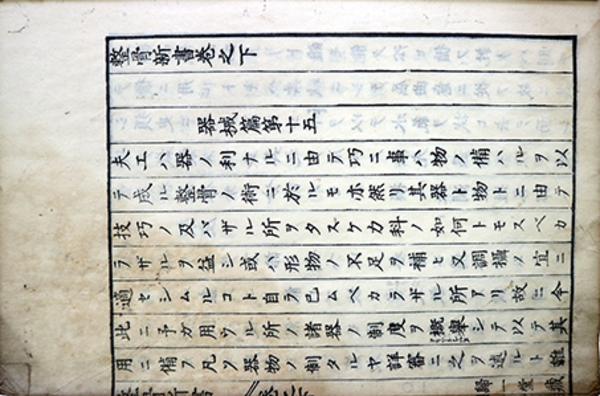 整骨新書巻之下
器械篇第十五
夫工ハ器ノ利ナルニ由テ巧ニ事ハ物ノ備ハルヲ以
テ成ル整骨ノ術ニ於ルモ亦然リ其器ト物トニ由テ
技巧ノ及バザル所ヲタスケカ科ノ如何トモスベカ
ラザルヲ益シ或ハ形物ノ不足ヲ補ヒ又調攝ノ宜ニ
適セシムルコト自ラ已ムベカラザル所アリ故ニ今
此ニ予ガ用ウル所ノ諸器ノ制度ヲ概擧シテ以テ其
用ニ備フ凡ソ器物ノ制タルヤ詳審ニ之ヲ述ルト雖
歸一堂藏